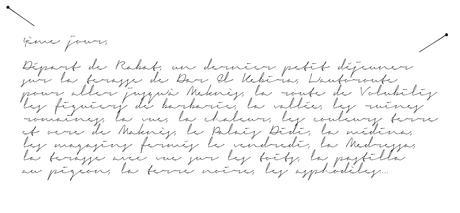 4ème jour,
Départ de Rabat, un dernier petit déjeuner
sur la terasse de Dar El Kebira, L'autoroute
pour aller jusquà Meknès, la route de Volubilis
les figuiers de barbarie, la vallée, les ruines
romaines, la vue, la chaleur, les couleurs terre
et vere de Meknès, le Palais Didi, la médina,
les magasins fermés le vendredi, la Medressa,
la terasse avec vue sur les toits, la pastilla
au pigeon, la terre noire, les asphodèles...